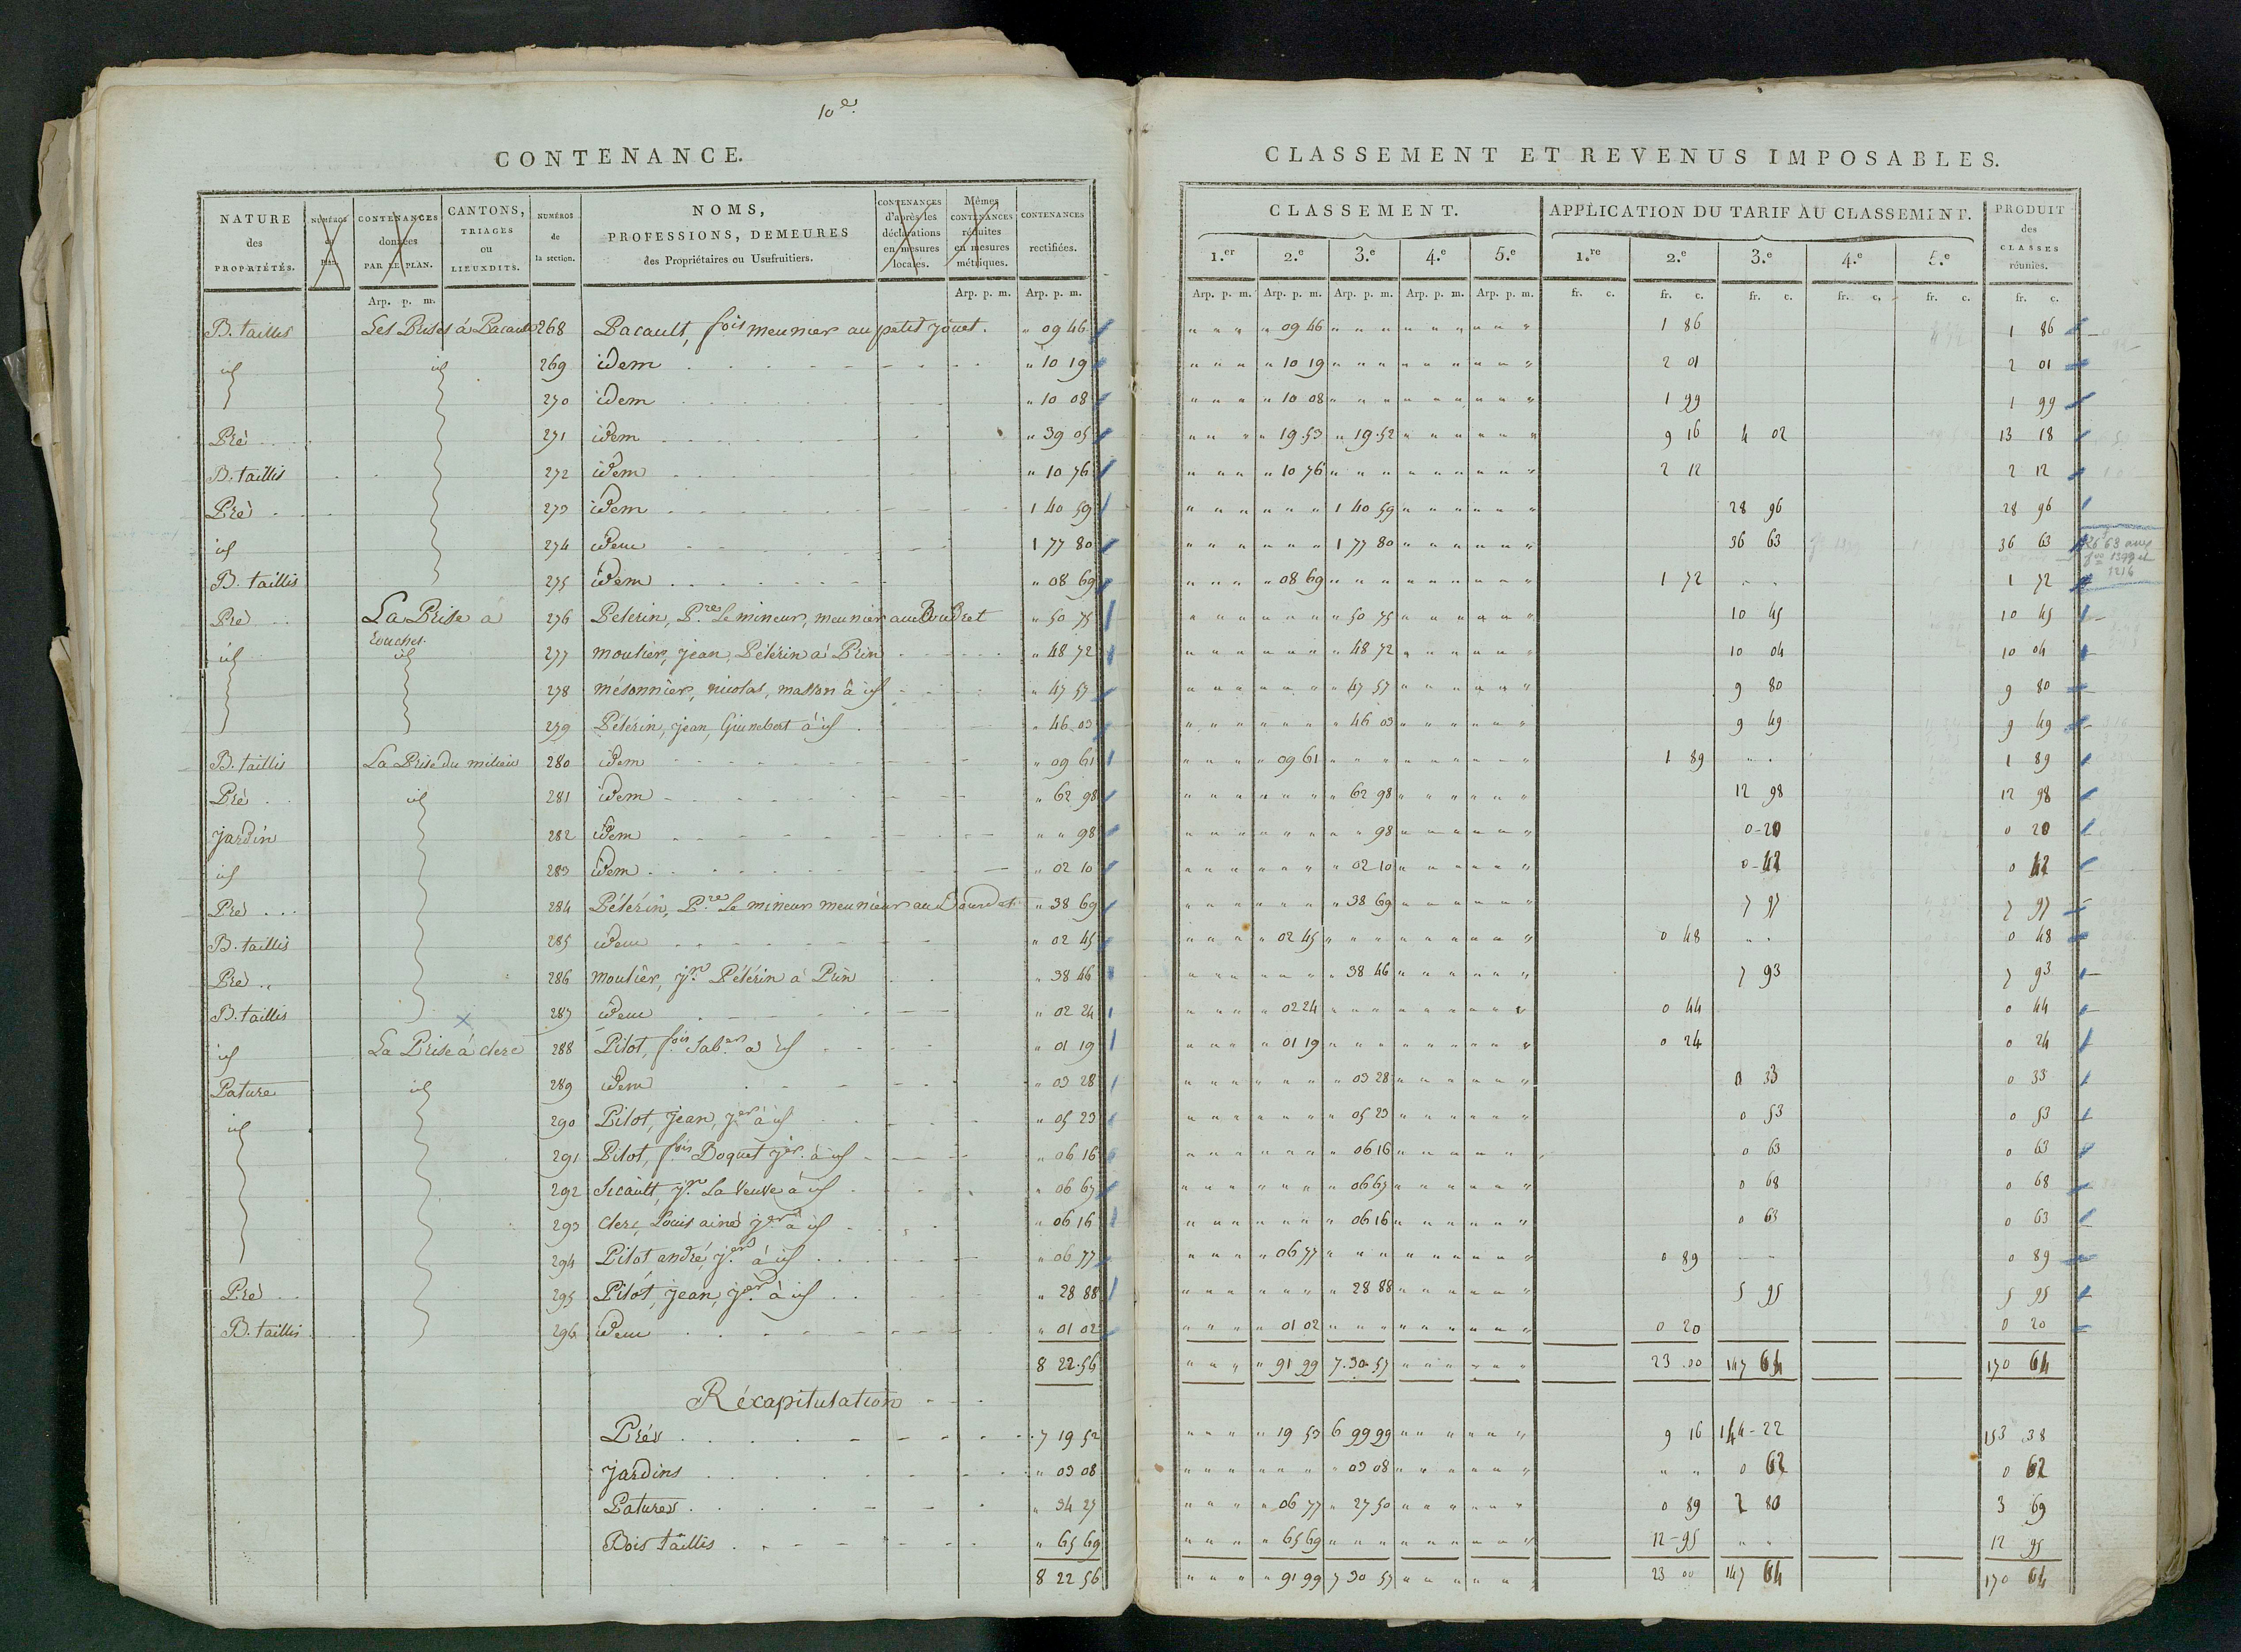 10e.
CONTENANCE.
NATURE des PROPRIÉTÉS. NUMÉROS du plan. CONTENANCES données PAR LE PLAN. CANTONS, TRIAGES OU LIEUXDITS. NUMÉROS de la section. NOMS, PROFESSIONS, DEMEURES des Propriétaires ou Usufruitiers. CONTENANCES d'après les déclarations en mesures locales. Mêmes CONTENANCES réduites en mesures métriques. CONTENANCES rectifiées.
Arp. p. m. Arp. p. m. Arp. p. m.
B. taillis Les Prises à Bacault 268 Bacault, fois meunier au petit jouet. " 09 46
id id 269 idem " 10 19
270 idem " 10 08
Pré 271 idem " 39 05
B. taillis 272 idem " 10 76
Pré 273 idem 1 40 59
id 274 idem 1 77 80
B. taillis 275 idem " 08 69
Pré La Prise à touches. 276 Pelerin, P.re Le mineur, meunier au Doudret " 50 75
id id 277 moulier, jean, Pélérin à Prin " 48 72
278 mésonnier, nicolas, masson à id " 47 57
279 Pélérin, jean, Guinebert à id " 46 03
B. taillis La Prise du milieu 280 idem " 09 61
Pré id 281 idem " 62 98
jardin 282 idem " " 98
id 283 idem " 02 10
Pré 284 Pélérin, P.re Le mineur meunier au Doudret " 38 69
B. taillis 285 idem " 02 45
Pré 286 moulier, j.n Pélérin à Prin " 38 46
B. taillis 287 idem " 02 24
id La Prise à clerc 288 Pilot, fois Sab.er à id " 01 19
Pature id 289 idem " 03 28
id 290 Pilot, jean, j.er à id " 05 23
291 Pilot, fois Doquet j.er à id " 06 16
292 Sicault, j.n La veuve à id " 06 67
293 clerc, Louis ainé j.er à id " 06 16
294 Pilot andré, j.er à id " 06 77
Pré 295 Pilot, jean, j.er à id " 28 88
B. taillis 296 idem " 01 02
8 22.56
Récapitulation
Prés 7 19 52
jardins " 03 08
Patures " 34 27
Bois taillis " 65 69
8 22 56
CLASSEMENT ET REVENUS IMPOSABLES.
CLASSEMENT. APPLICATION DU TARIF AU CLASSEMENT. PRODUIT des CLASSES réunies.
1.er 2.e 3.e 4.e 5.e 1.re 2.e 3.e 4.e 5.e
Arp. p. m. Arp. p. m. Arp. p. m. Arp. p. m. Arp. p. m. fr. c. fr. c. fr. c. fr. c. fr. c. fr. c.
" 09 46 1 86 1 86
" 10 19 2 01 2 01
" 10 08 1 99 1 99
" 19.53 " 19.52 9 16 4 02 13 18
" 10 76 2 12 2 12
1 40 59 28 96 28 96
1 77 80 36 63 36 63
" 08 69 1 72 1 72
" 50 75 10 45 10 45
" 48 72 10 04 10 04
" 47 57 9 80 9 80
" 46 03 9 49 9 49
" 09 61 1 89 1 89
" 62 98 12 98 12 98
" " 98 0-20 0 20
" 02 10 0-42 0 42
" 38 69 7 97 7 97
" 02 45 0 48 0 48
" 38 46 7 93 7 93
" 02 24 0 44 0 44
" 01 19 0 24 0 24
" 03 28 0 33 0 33
" 05 23 0 53 0 53
" 06 16 0 63 0 63
" 06 67 0 68 0 68
" 06 16 0 63 0 63
" 06 77 0 89 0 89
" 28 88 5 95 5 95
" 01 02 0 20 0 20
" 91 99 7.30.57 23.00 147 64 170 64
" 19 53 6 99 99 9 16 144-22 153 38
" 03 08 " " 0 62 0 62
" 06 77 " 27 50 0 89 2 80 3 69
" 65 69 12-95 " " 12 95
" 91 99 7 30 57 23 00 147 64 170 64